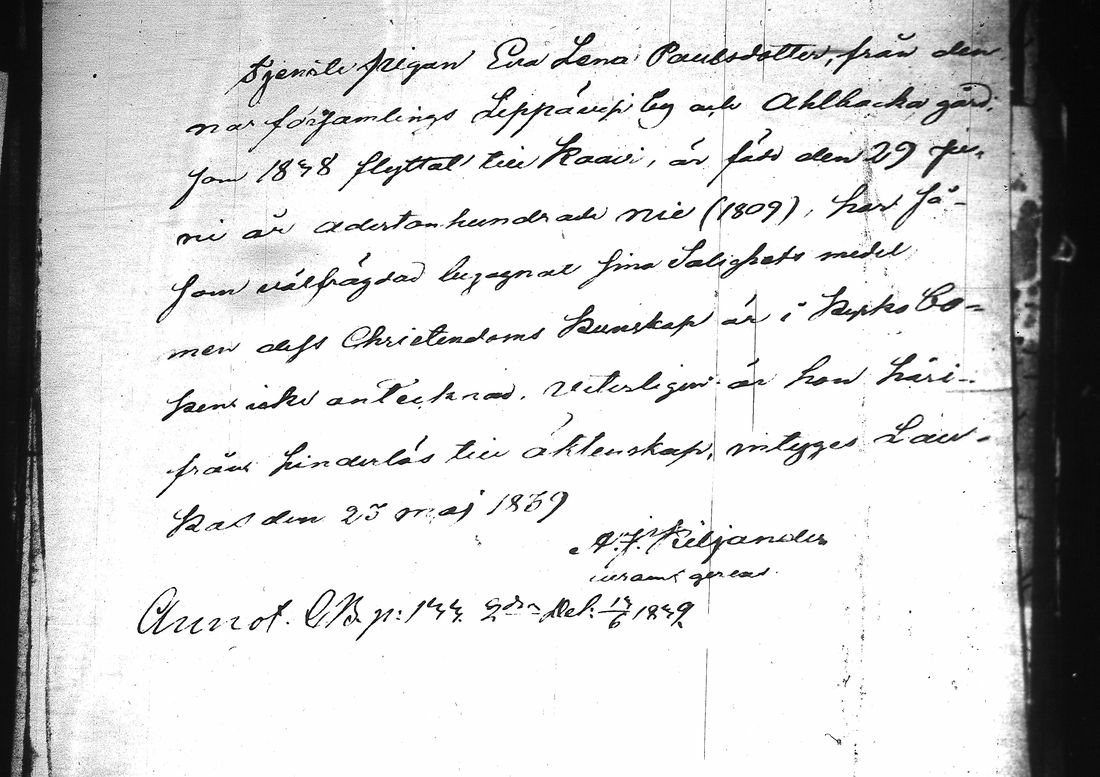 Tjenste pigan Eva Lena Paulsdotter, från den
nas församlings Leppävesi by och Ahlbacka gård;
som 1838 flyttat till Kaavi, är född den 29 ju-
ni år adertonhundrade nie (1809), har så-
som välfrägdad begagnat sina Salighets medel
men dess Christendoms kunskap är i Kyrko bo-
ken icke antecknad. Veterligen är hon häri-
från hinderlös till äktenskap, intygges Lau-
kas den 23 maj 1839
A. F. Kiljander
Annot. CB. p: 144. 2dra Del.